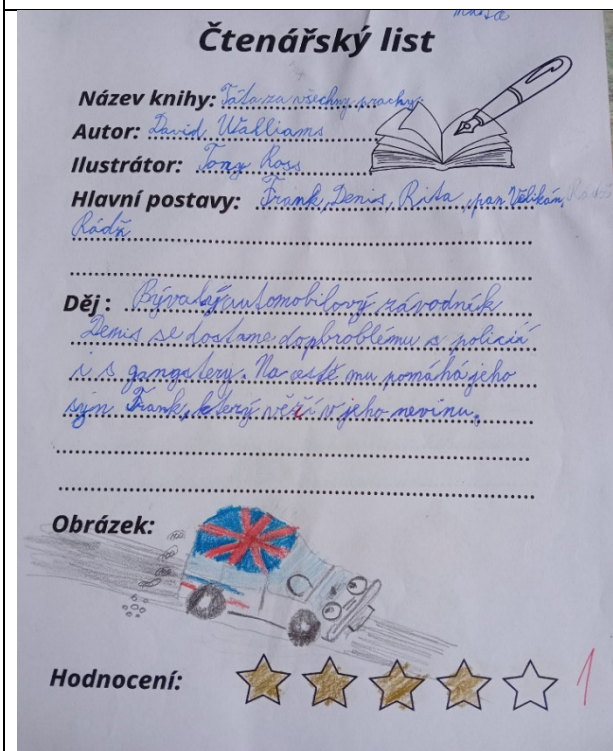 Čtenářský list
Název knihy: Táta za všechny prachy
Autor: David Walliams
Ilustrátor: Tony Ross
Hlavní postavy: Frank, Denis, Rita, pan Velikán,
Rádž
Děj : Bývalý automobilový závodník
Denis se dostane do problému s policií
i s gangstery. Na cestě mu pomáhá jeho
syn Frank, který věří v jeho nevinu.
Obrázek:
Hodnocení: 1